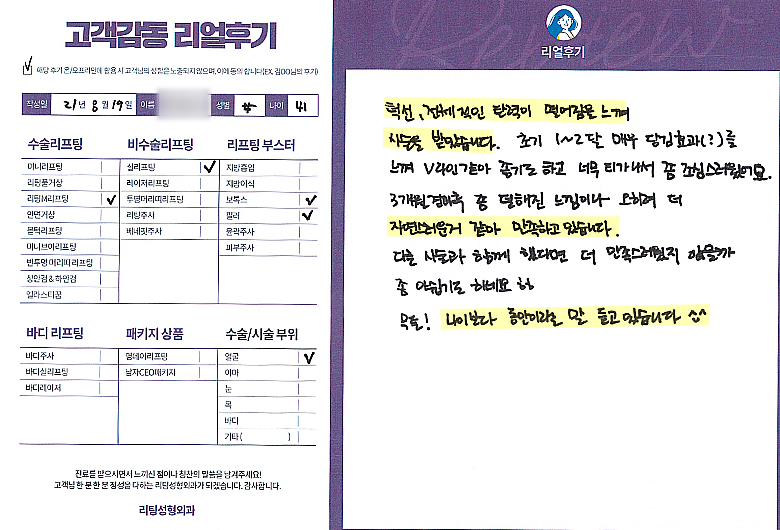 고객감동 리얼후기
해당 후기 온/오프라인에 활용 시 고객님의 성함은 노출되지 않으며, 이에 동의 합니다(EX. 김OO님의 후기)
작성일 21년 8월 19일 이름 성별 나이 41
수술리프팅 비수술리프팅 리프팅 부스터
미니리프팅 실리프팅 지방흡입
리팅풀거상 레이저리프팅 지방이식
리팅M리프팅 투명머리띠리프팅 보톡스
안면거상 리팅주사 필러
문턱리프팅 베네핏주사 윤곽주사
미니브이리프팅 피부주사
반투명 머리띠 리프팅
상안검 & 하안검
엘라스티꿈
바디 리프팅 패키지 상품 수술/시술 부위
바디주사 원데이리프팅 얼굴
바디실리프팅 남자CEO패키지 이마
바디레이저 눈
목
바디
기타( )
진료를 받으시면서 느끼신 점이나 칭찬의 말씀을 남겨주세요!
고객님 한 분 한 분 정성을 다하는 리팅성형외과가 되겠습니다. 감사합니다.
리팅성형외과
Review
리얼후기
탄력이 떨어짐을 느껴
시술을 받았습니다. 초기 1~2달 매우 당김효과(?)를
느껴 V라인 같아 좋기도 하고 너무 티가나서 좀 조심스러웠어요.
3개월경과후 좀 덜해진 느낌이나 오히려 더
자연스러운거 같아 만족하고 있습니다.
다른 시술과 함께 했다면 더 만족스러웠지 않을까
좀 아쉽기도 하네요
나이보다 동안이라는 말 듣고 있습니다 ^^